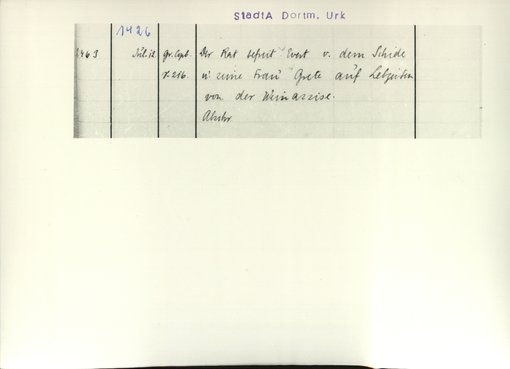 StadtA Dortm. Urk
1426
463 Juli 12 gr. Copb. Der Rat befreit Evert v. dem Schide
r. 216. u seine Frau Grete auf Lebzeiten
von der Weinassise.
Abschr.